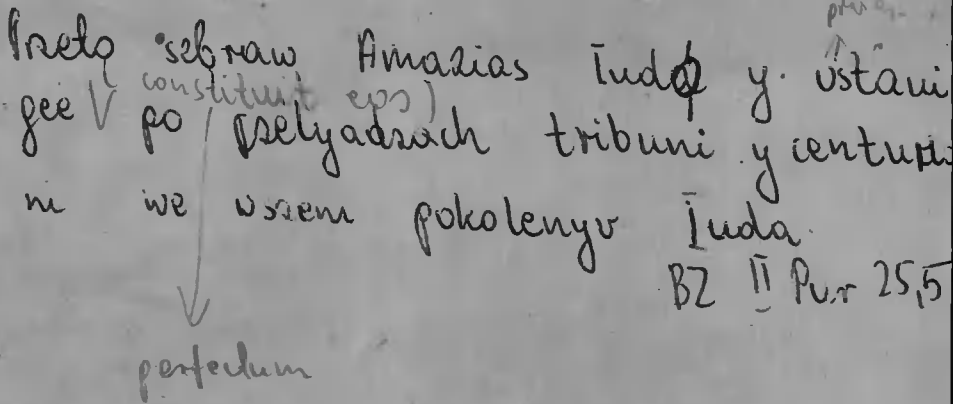 przy
Przeto sebraw Amazias Iudø y ustawi
constituit eos)
gee V po czelyadzach tribuni y centurio
ni we wszem pokolenyv Iuda.
BZ II Par 25,5
perfectum